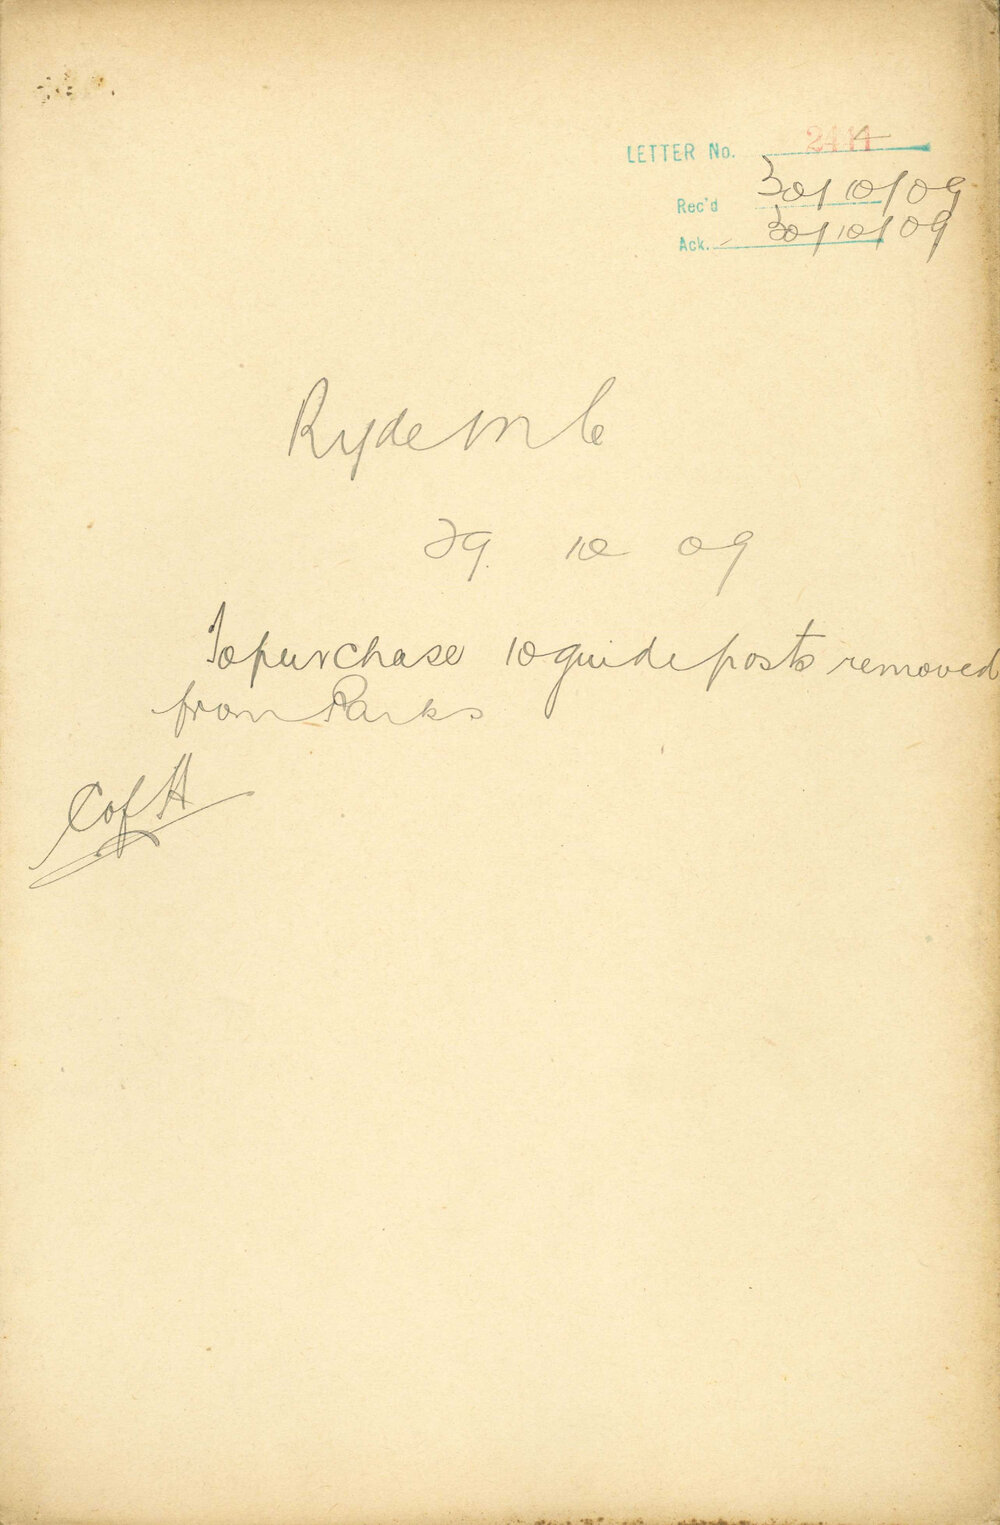 LETTER No. 2444
Rec'd 30/10/09
Ack. 30/10/09
Ryde M C
29. 10 09
To purchase 10 guide posts removed
from Parks
C of H